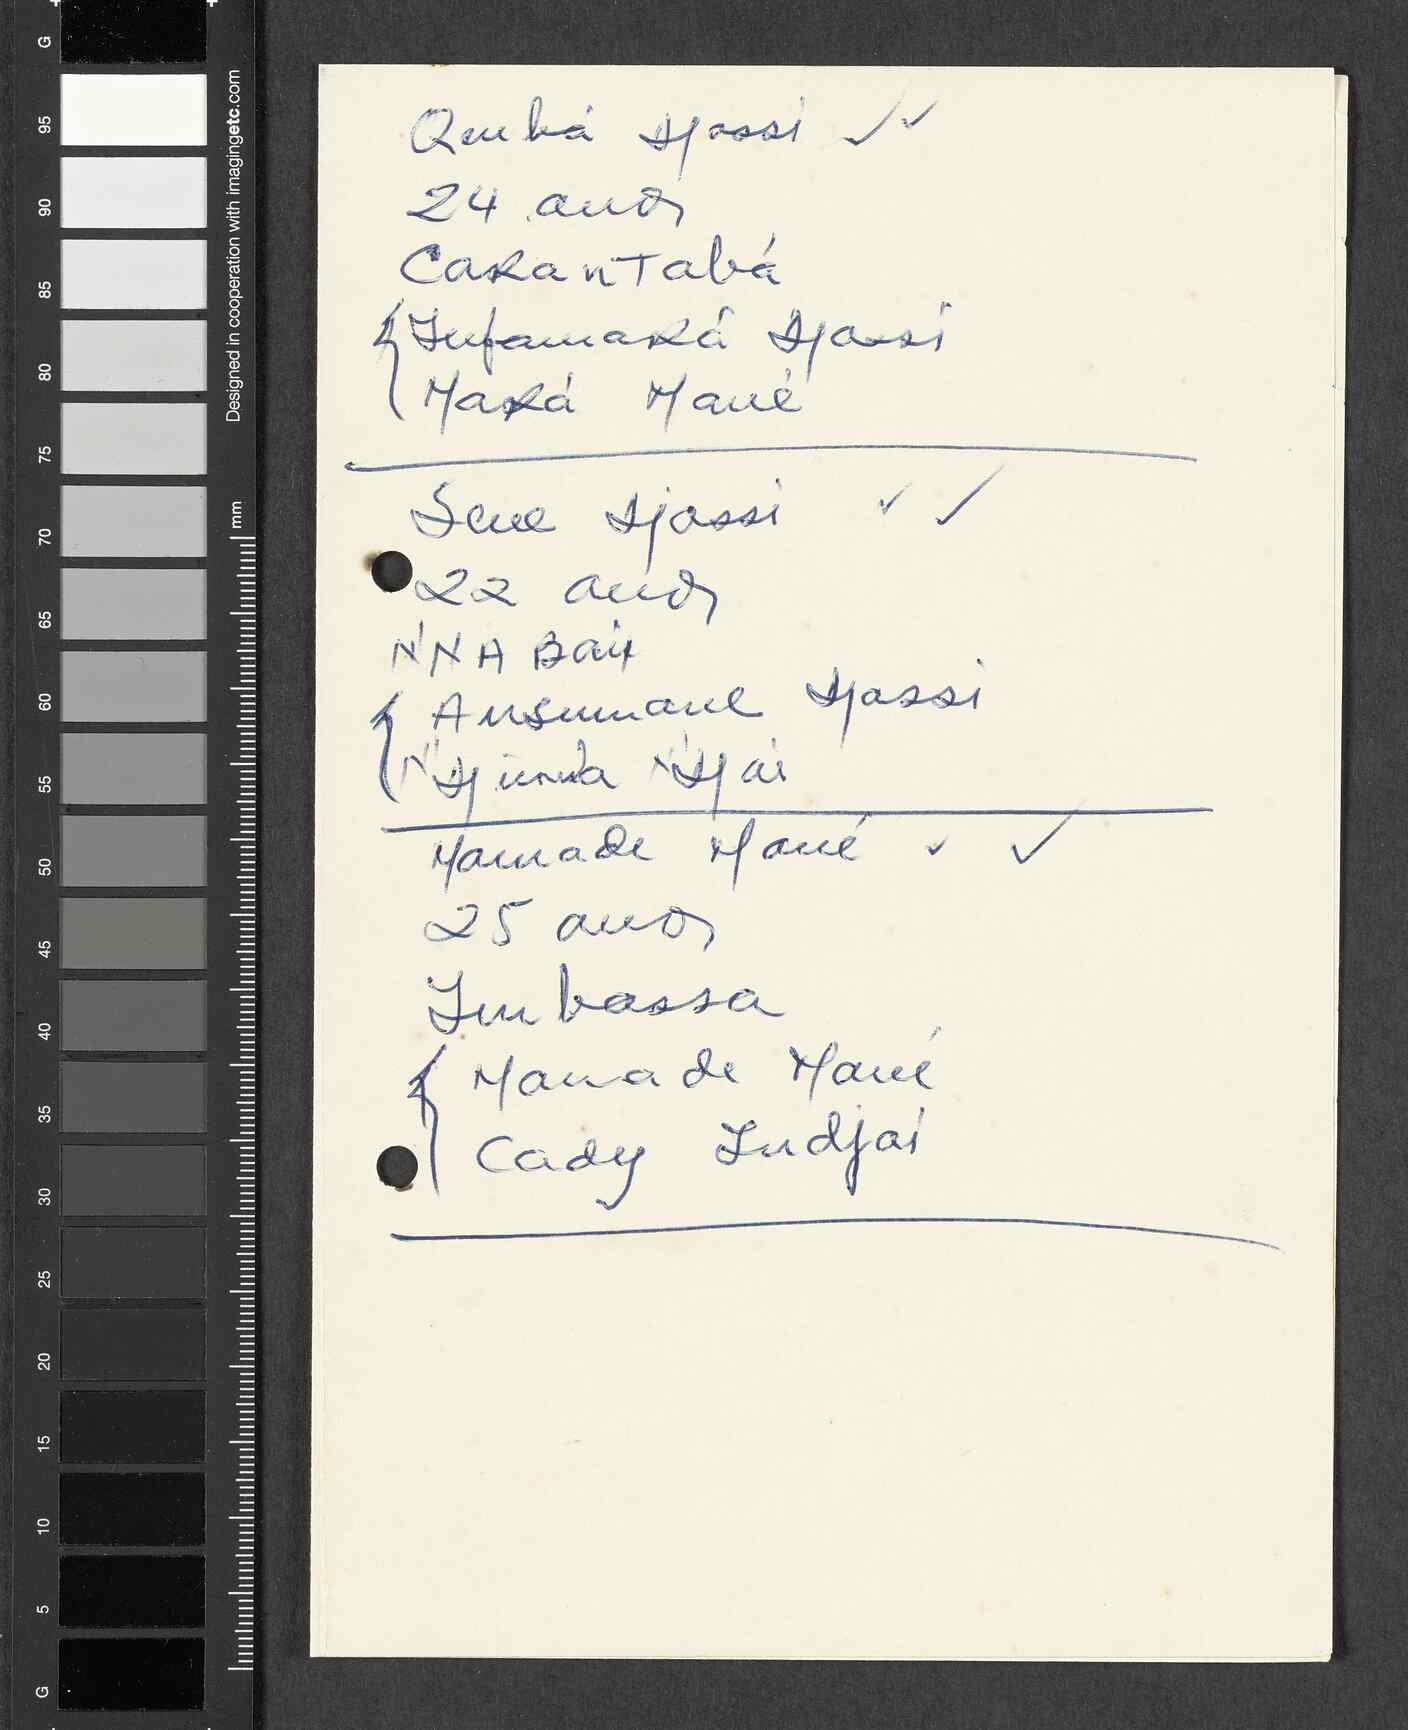 Quebá Djassi ✓✓
24 anos
Carantabá
Infamará Djassi
Mará Mané
Sene Djassi ✓ ✓
22 anos
N'NA Baix
Ansumane Djassi
N'Djimba N'Djai
Mamade Mané ✓ ✓
25 anos
Imbassa
Mamade Mané
Cady Indjai
Designed in cooperation with imagingetc.com
mm
G
95
90
85
80
75
70
65
60
55
50
45
40
35
30
25
20
15
10
5
G